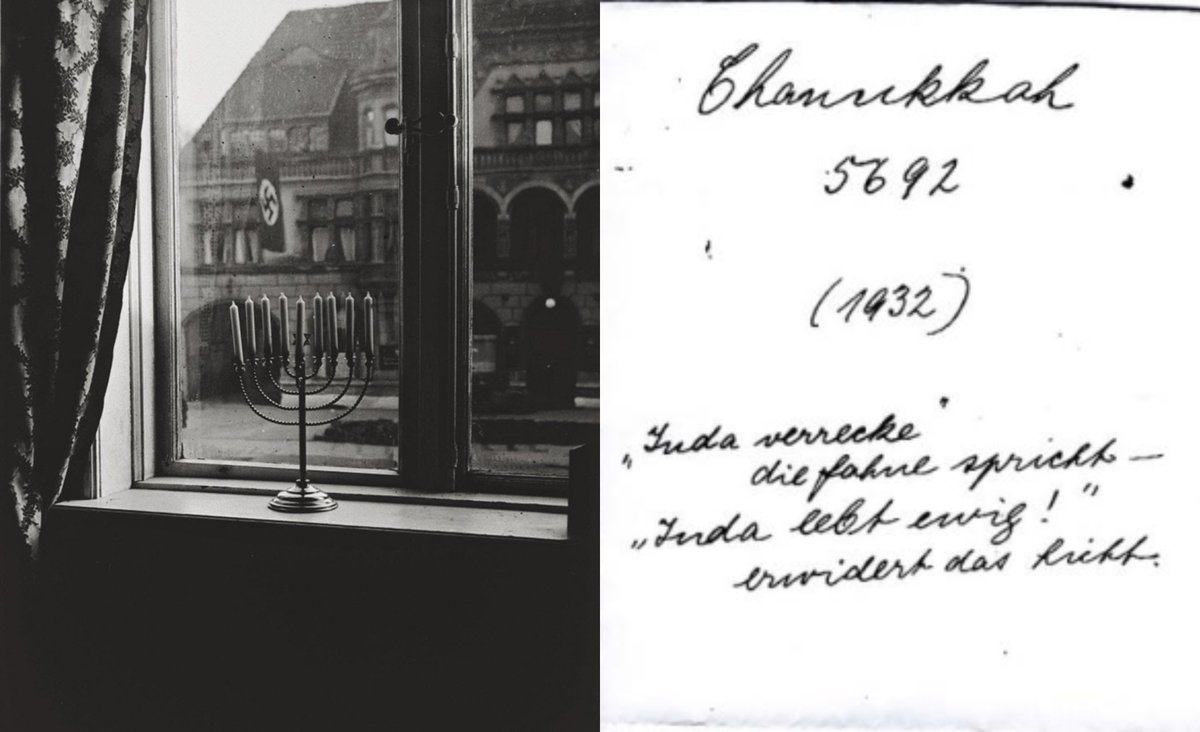 Chanukkah
5692
(1932)
„Juda verrecke"
die Fahne spricht –
„Juda lebt ewig!"
erwidert das Licht.